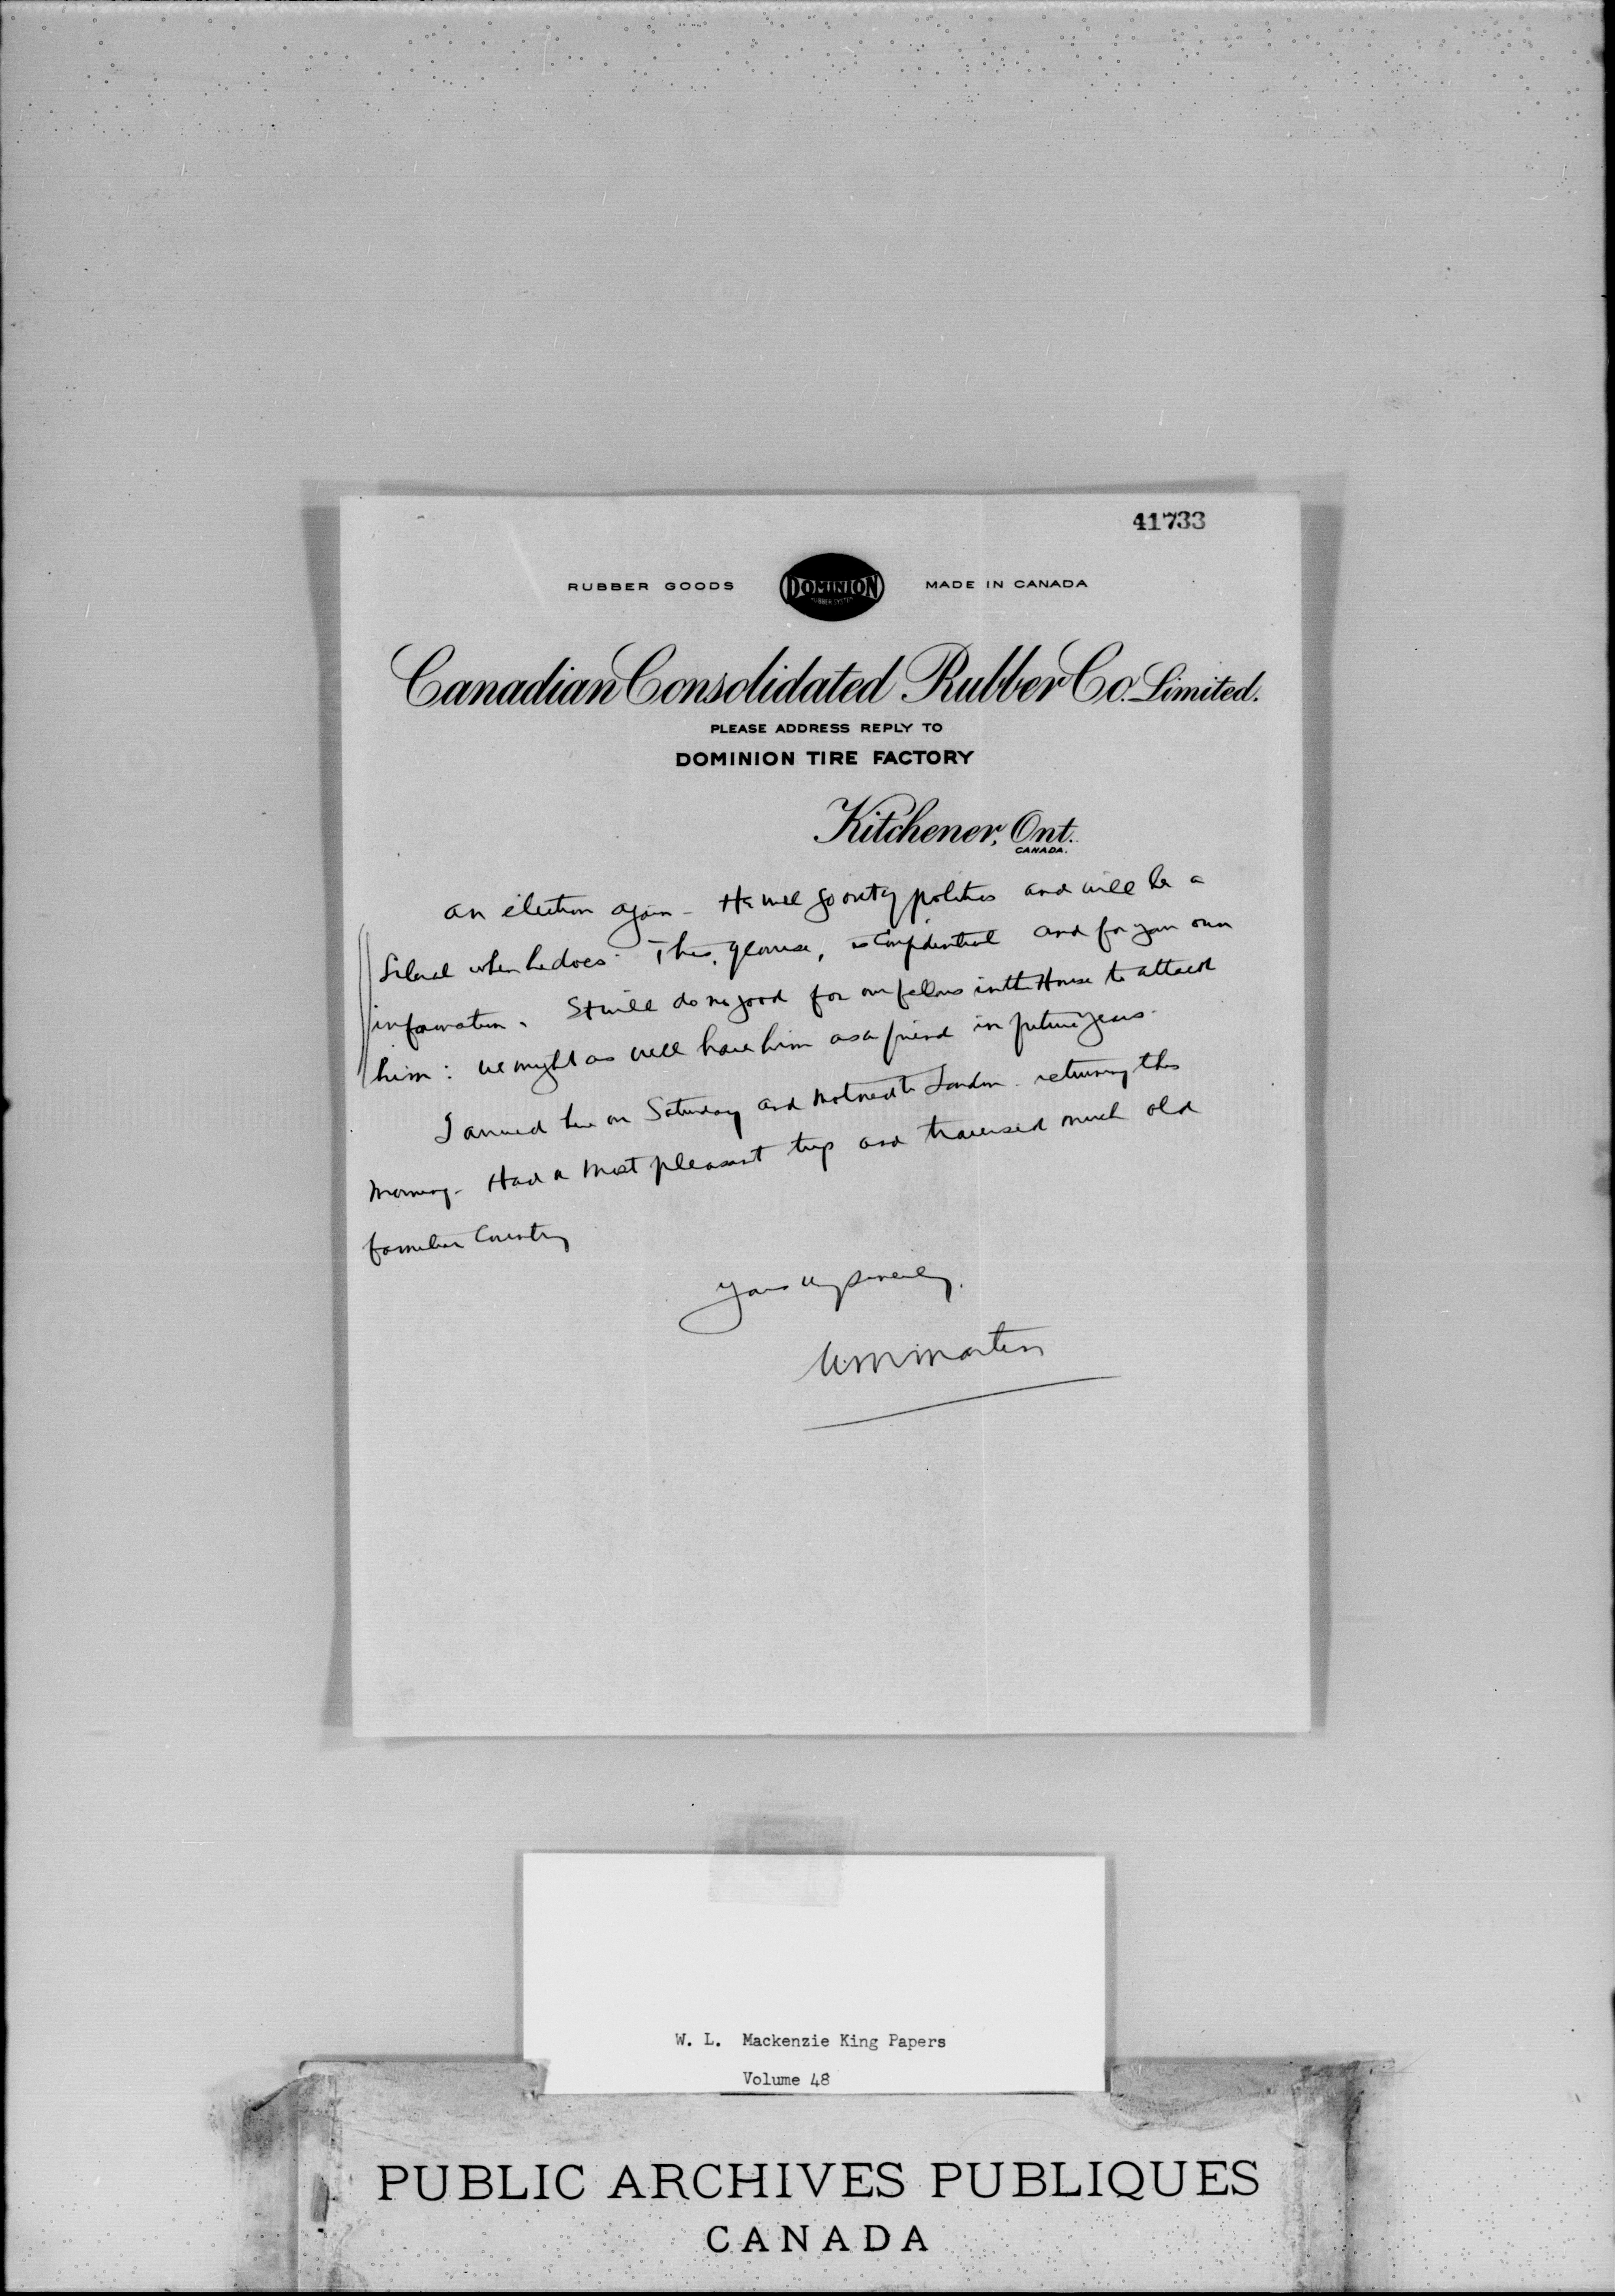 41733
RUBBER GOODS DOMINION RUBBER SYSTEM MADE IN CANADA
Canadian Consolidated Rubber Co. Limited.
PLEASE ADDRESS REPLY TO
DOMINION TIRE FACTORY
Kitchener, Ont.
CANADA.
an election again - He will go out of politics and will be a
Liberal when he does. This, of course, is confidential and for your own
information. It will do no good for our fellows in the House to attack
him: we might as well have him as a friend in future years.
I arrived here on Saturday and motored to London returning this
morning - Had a most pleasant trip and traversed much old
familiar country
Yours very sincerely,
W.M. Martin
W. L. Mackenzie King Papers
Volume 48
PUBLIC ARCHIVES PUBLIQUES
CANADA